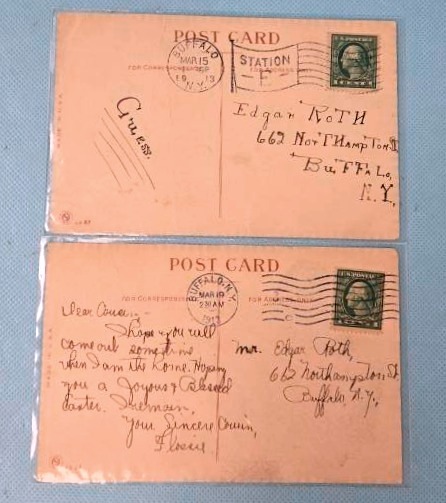 POST CARD
BUFFALO
MAR 15
1913
N.Y.
STATION
F
U.S. POSTAGE
FOR CORRESPONDENCE
FOR ADDRESS
MADE IN U.S.A.
Guess.
Edgar Roth
662 Northampton St
Buffalo,
N.Y.
POST CARD
BUFFALO, N.Y.
MAR 19
230 AM
1913
U.S. POSTAGE
FOR CORRESPONDENCE
FOR ADDRESS
Dear Cousin,-
I hope you will
come out sometime
when I am the home. Hoping
you a Joyous & Blessed
Easter. I remain,
Your Sincere Cousin,
Flossie
Mr. Edgar Roth,
662 Northampton St
Buffalo, N.Y.